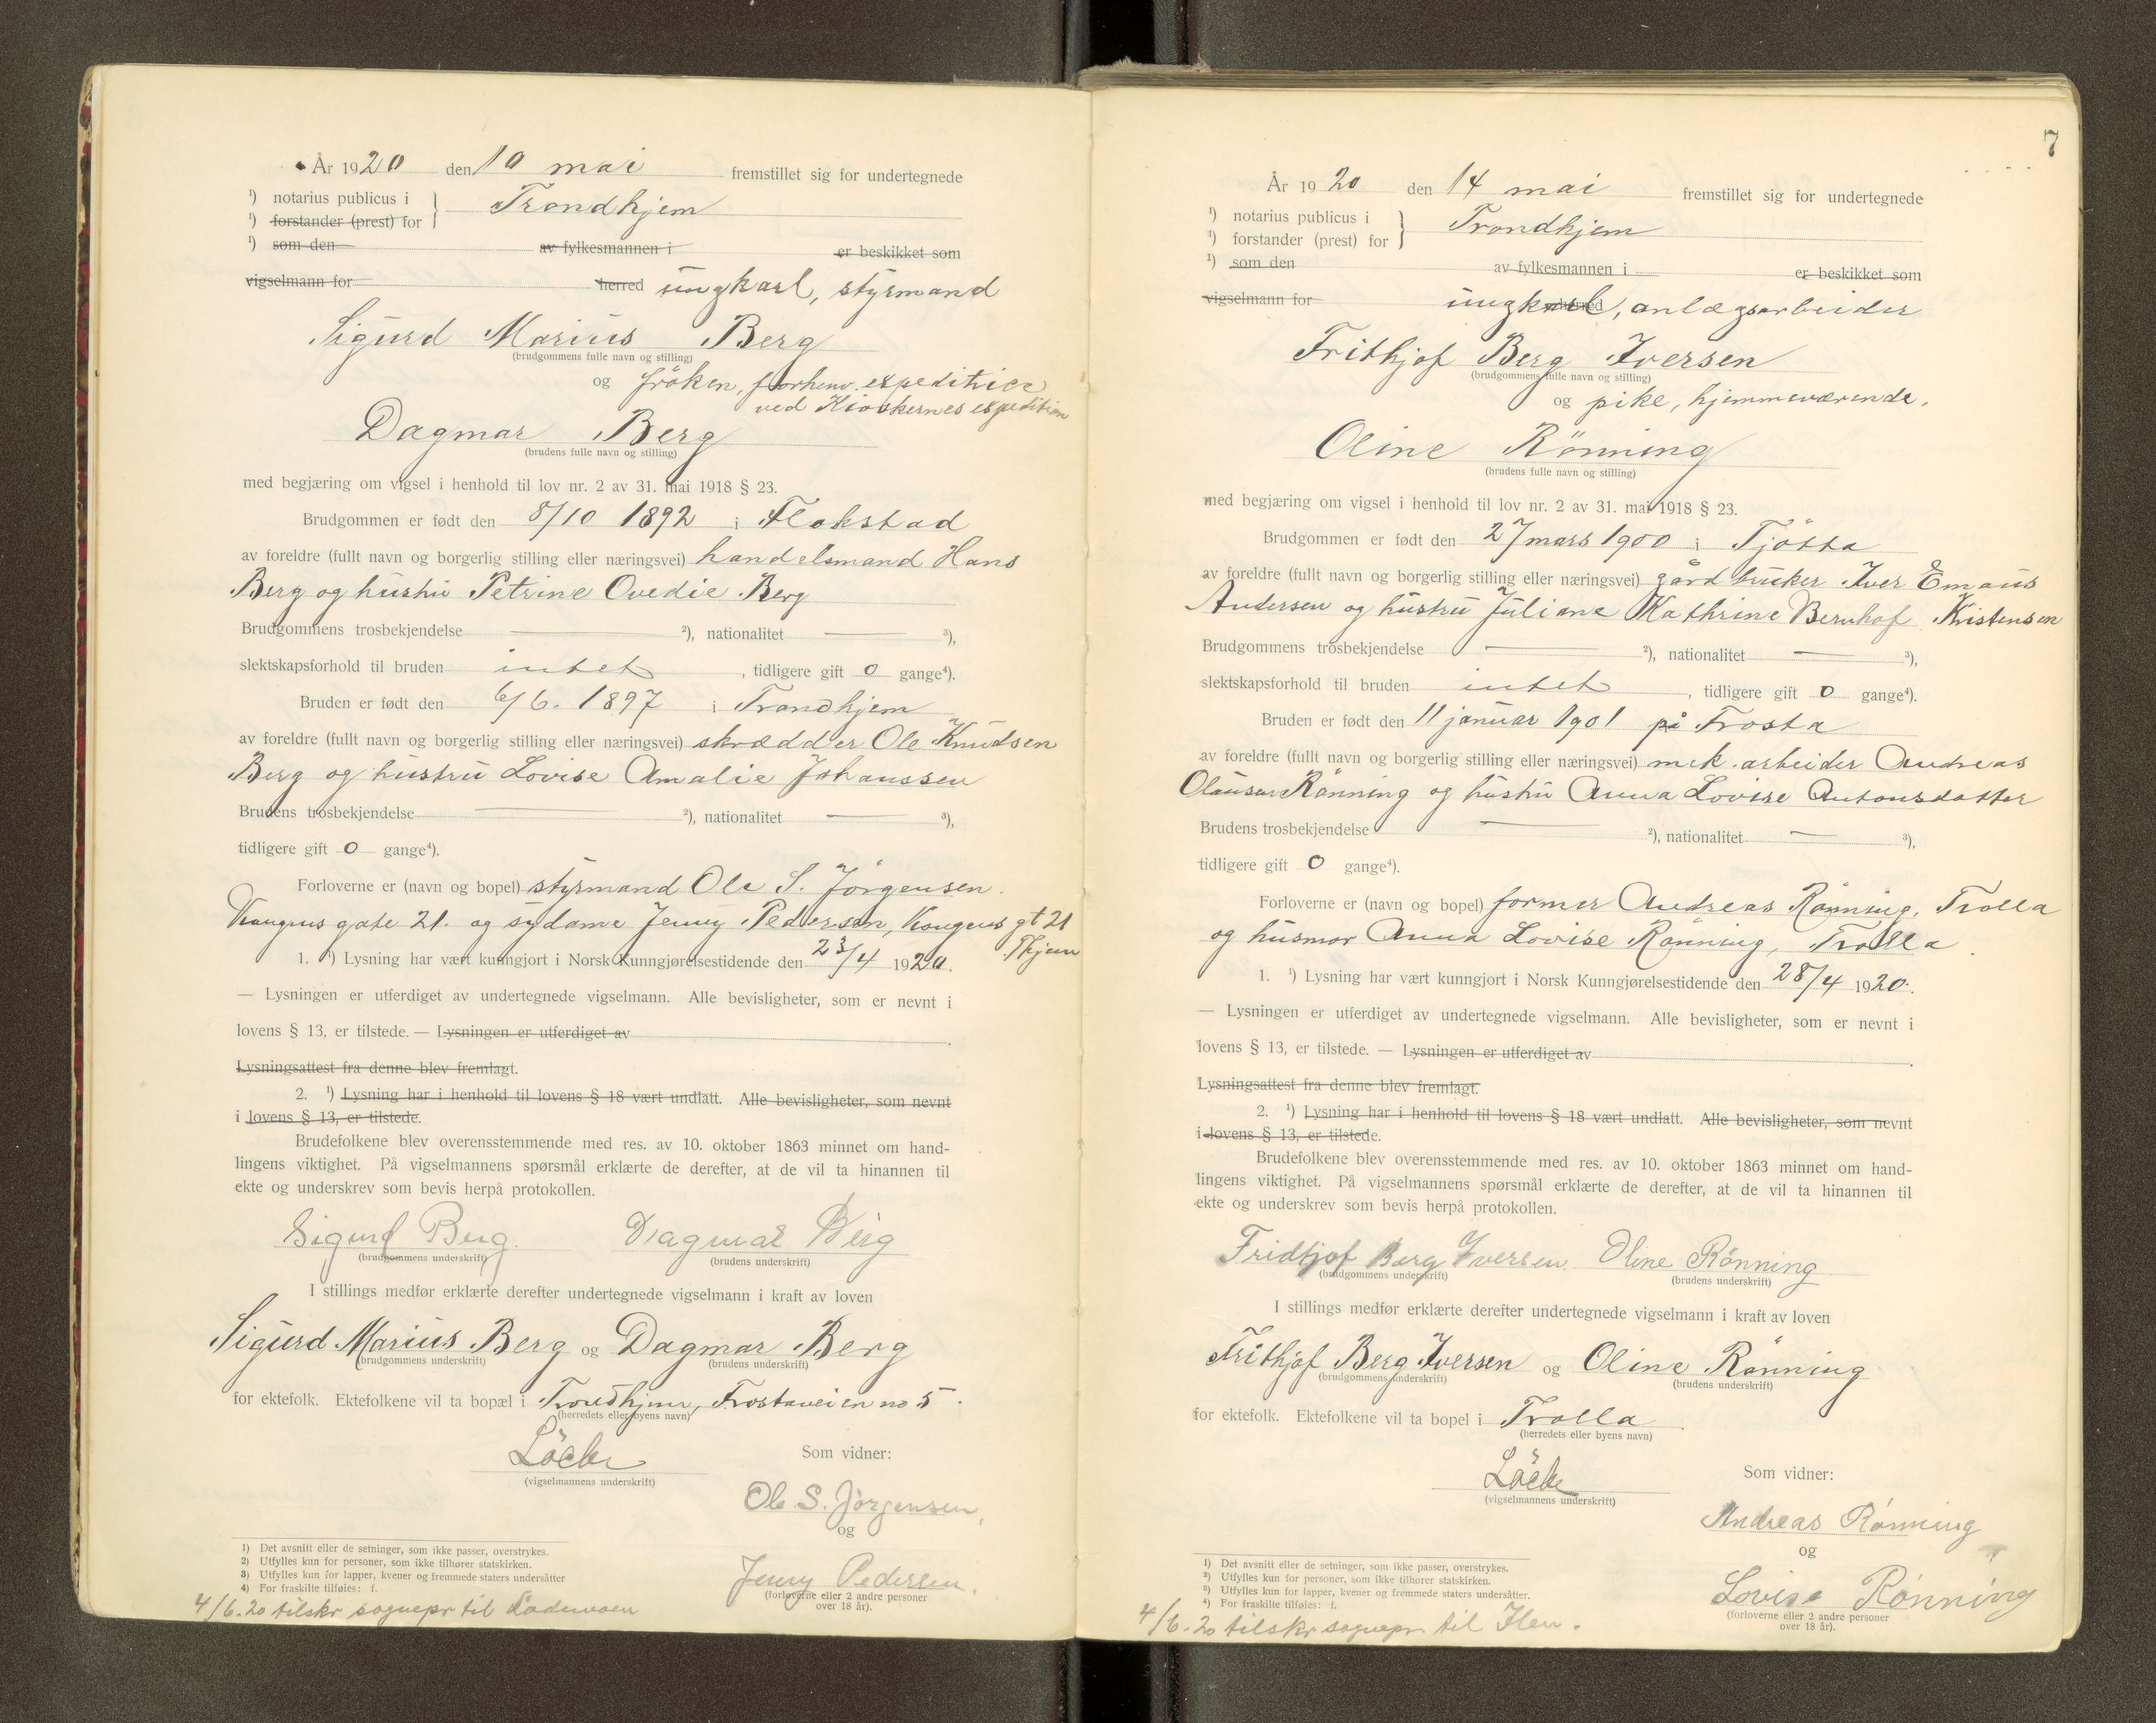 År 1920 den 10 mai fremstillet sig for undertegnede
¹) notarius publicus i } Trondhjem
¹) forstander (prest) for
¹) som den av fylkesmannen i er beskikket som
vigselmann for herred ungkarl, styrmand
Sigurd Marius Berg
(brudgommens fulle navn og stilling)
og fröken, forhenv. expeditrice
ved Kioskernes expedition
Dagmar Berg
(brudens fulle navn og stilling)
med begjæring om vigsel i henhold til lov nr. 2 av 31. mai 1918 § 23.
Brudgommen er født den 8/10 1892 i Flakstad
av foreldre (fullt navn og borgerlig stilling eller næringsvei) handelsmand Hans
Berg og hustru Petrine Ovedie Berg
Brudgommens trosbekjendelse — ²), nationalitet — ³),
slektskapsforhold til bruden intet, tidligere gift 0 gange⁴).
Bruden er født den 6/6. 1897 i Trondhjem
av foreldre (fullt navn og borgerlig stilling eller næringsvei) skrædder Ole Knudsen
Berg og hustru Lovise Amalie Johanssen
Brudens trosbekjendelse — ²), nationalitet — ³),
tidligere gift 0 gange⁴).
Forloverne er (navn og bopel) styrmand Ole S. Jörgensen.
Kongens gate 21. og sydame Jenny Pedersen, Kongens gt 21
Thjem
1. ¹) Lysning har vært kunngjort i Norsk Kunngjørelsestidende den 23/4 1920.
— Lysningen er utferdiget av undertegnede vigselmann. Alle bevisligheter, som er nevnt i
lovens § 13, er tilstede. — Lysningen er utferdiget av
Lysningsattest fra denne blev fremlagt.
2. ¹) Lysning har i henhold til lovens § 18 vært undlatt. Alle bevisligheter, som nevnt
i lovens § 13, er tilstede.
Brudefolkene blev overensstemmende med res. av 10. oktober 1863 minnet om hand-
lingens viktighet. På vigselmannens spørsmål erklærte de derefter, at de vil ta hinannen til
ekte og underskrev som bevis herpå protokollen.
Sigurd Berg. Dagmar Berg
(brudgommens underskrift) (brudens underskrift)
I stillings medfør erklærte derefter undertegnede vigselmann i kraft av loven
Sigurd Marius Berg og Dagmar Berg
(brudgommens underskrift) (brudens underskrift)
for ektefolk. Ektefolkene vil ta bopæl i Trondhjem, Frostaveien no 5.
(herredets eller byens navn)
Löcke
(vigselmannens underskrift)
Som vidner:
Ole S. Jörgensen,
og
Jenny Pedersen.
(forloverne eller 2 andre personer
over 18 år).
1) Det avsnitt eller de setninger, som ikke passer, overstrykes.
2) Utfylles kun for personer, som ikke tilhører statskirken.
3) Utfylles kun for lapper, kvener og fremmede staters undersåtter
4) For fraskilte tilføies: f.
4/6.20 tilskr sognepr til Lademoen
7
År 1920 den 14 mai fremstillet sig for undertegnede
¹) notarius publicus i } Trondhjem
¹) forstander (prest) for
¹) som den av fylkesmannen i er beskikket som
vigselmann for herred ungkarl, anlægsarbeider
Frithjof Berg Iversen
(brudgommens fulle navn og stilling)
og pike, hjemmeværende.
Oline Rönning
(brudens fulle navn og stilling)
med begjæring om vigsel i henhold til lov nr. 2 av 31. mai 1918 § 23.
Brudgommen er født den 27 mars 1900 i Tjötta
av foreldre (fullt navn og borgerlig stilling eller næringsvei) gårdbruker Iver Emaus
Andersen og hustru Juliane Kathrine Bernhof Kristensen
Brudgommens trosbekjendelse — ²), nationalitet — ³),
slektskapsforhold til bruden intet, tidligere gift 0 gange⁴).
Bruden er født den 11 januar 1901 på Frosta
av foreldre (fullt navn og borgerlig stilling eller næringsvei) mek. arbeider Andreas
Olausen Rönning og hustru Anna Lovise Antonsdatter
Brudens trosbekjendelse — ²), nationalitet — ³),
tidligere gift 0 gange⁴).
Forloverne er (navn og bopel) former Andreas Rönning, Trolla
og husmor Anna Lovise Rönning, Trolla.
1. ¹) Lysning har vært kunngjort i Norsk Kunngjørelsestidende den 28/4 1920.
— Lysningen er utferdiget av undertegnede vigselmann. Alle bevisligheter, som er nevnt i
lovens § 13, er tilstede. — Lysningen er utferdiget av
Lysningsattest fra denne blev fremlagt.
2. ¹) Lysning har i henhold til lovens § 18 vært undlatt. Alle bevisligheter, som nevnt
i lovens § 13, er tilstede.
Brudefolkene blev overensstemmende med res. av 10. oktober 1863 minnet om hand-
lingens viktighet. På vigselmannens spørsmål erklærte de derefter, at de vil ta hinannen til
ekte og underskrev som bevis herpå protokollen.
Fridtjof Berg Iversen. Oline Rönning
(brudgommens underskrift) (brudens underskrift)
I stillings medfør erklærte derefter undertegnede vigselmann i kraft av loven
Frithjof Berg Iversen og Oline Rönning
(brudgommens underskrift) (brudens underskrift)
for ektefolk. Ektefolkene vil ta bopel i Trolla.
(herredets eller byens navn)
Löcke
(vigselmannens underskrift)
Som vidner:
Andreas Rönning
og
Lovise Rönning
(forloverne eller 2 andre personer
over 18 år).
1) Det avsnitt eller de setninger, som ikke passer, overstrykes.
2) Utfylles kun for personer, som ikke tilhører statskirken.
3) Utfylles kun for lapper, kvener og fremmede staters undersåtter.
4) For fraskilte tilføies: f.
4/6.20 tilskr sognepr til Ilen.